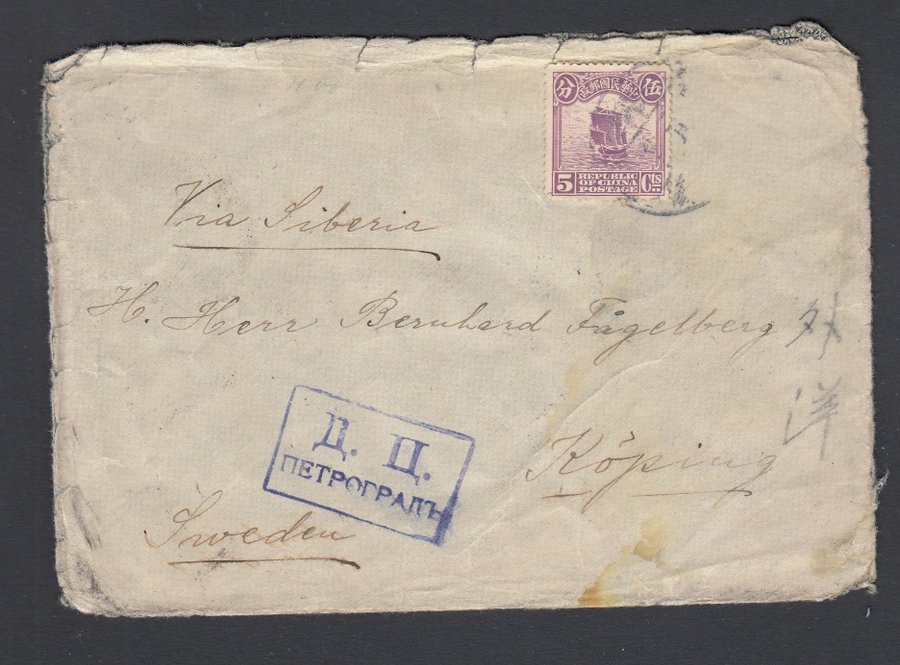 中華民國郵政
伍分
5 REPUBLIC OF CHINA POSTAGE Cts
Via Siberia
H. Herr Bernhard Fågelberg
外洋
Köping
Д. Ц.
ПЕТРОГРАДЪ
Sweden